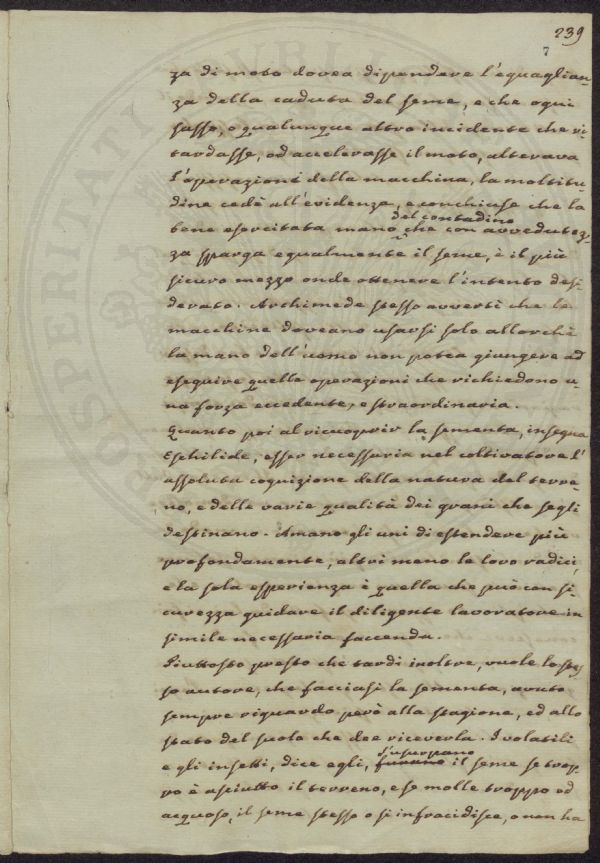 239
7
za di moto dovea dipendere l'eguaglian-
za della caduta del seme, e che ogni
sasso, o qualunque altro incidente che ri-
tardasse, od accelerasse il moto, alterava
l'operazioni della macchina, la moltitu-
dine cedè all'evidenza, e conchiuse che la
del contadino
bene esercitata mano che con avvedutez-
za sparga egualmente il seme, è il più
sicuro mezzo onde ottenere l'intento desi-
derato. Archimede stesso avvertì che le
macchine doveano usarsi solo allorchè
la mano dell'uomo non potea giungere ad
eseguire quelle operazioni che richiedono u-
na forza eccedente, e straordinaria.
Quanto poi al ricuoprir la sementa, insegna
Eschilide, esser necessaria nel coltivatore l'
assoluta cognizione della natura del terre-
no, e delle varie qualità dei grani che segli
destinano. Amano gli uni di estendere più
profondamente, altri meno le loro radici,
e la sola esperienza è quella che può con si-
curezza guidare il diligente lavoratore in
simile necessaria faccenda.
Piuttosto presto che tardi inoltre, vuole lo stes-
so autore, che facciasi la sementa, avuto
sempre riguardo però alla stagione, ed allo
stato del suolo che dee riceverla. I volatili
s'usurpano
e gli insetti, dice egli, furano il seme se trop-
po è asciutto il terreno, e se molle troppo od
acquoso, il seme stesso o si infracidisce, o non ha
PROSPERITATI PUBL